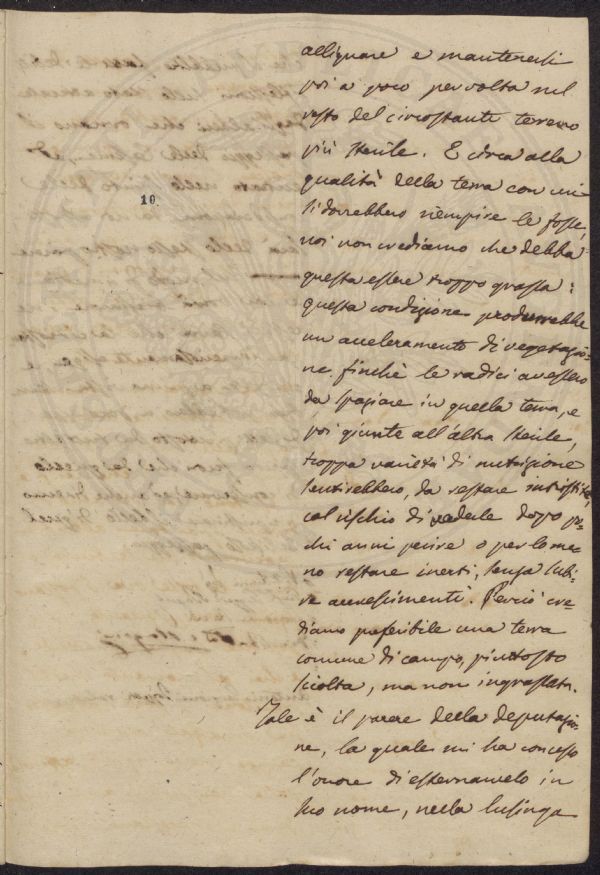 allignare e mantenersi
poi a poco per volta nel
resto del circostante terreno
più sterile. E circa alla
qualità della terra con cui
si dovrebbero riempire le fosse,
10.
noi non crediamo che debba
questa essere troppo grassa:
questa condizione produrrebbe
un acceleramento di vegetazio-
ne, finchè le radici avessero
da spaziare in quella terra, e
poi giunte all'altra sterile,
troppa varietà di nutrizione
sentirebbero, da restare intristite,
col rischio di vederle dopo po-
chi anni perire o per lo me-
no restare inerti, senza subi-
re accrescimenti. Perciò cre-
diamo preferibile una terra
comune di campo, piuttosto
sciolta, ma non ingrassata.
Tale è il parere della deputazio-
ne, la quale mi ha concesso
l'onore di esternarvelo in
suo nome, nella lusinga